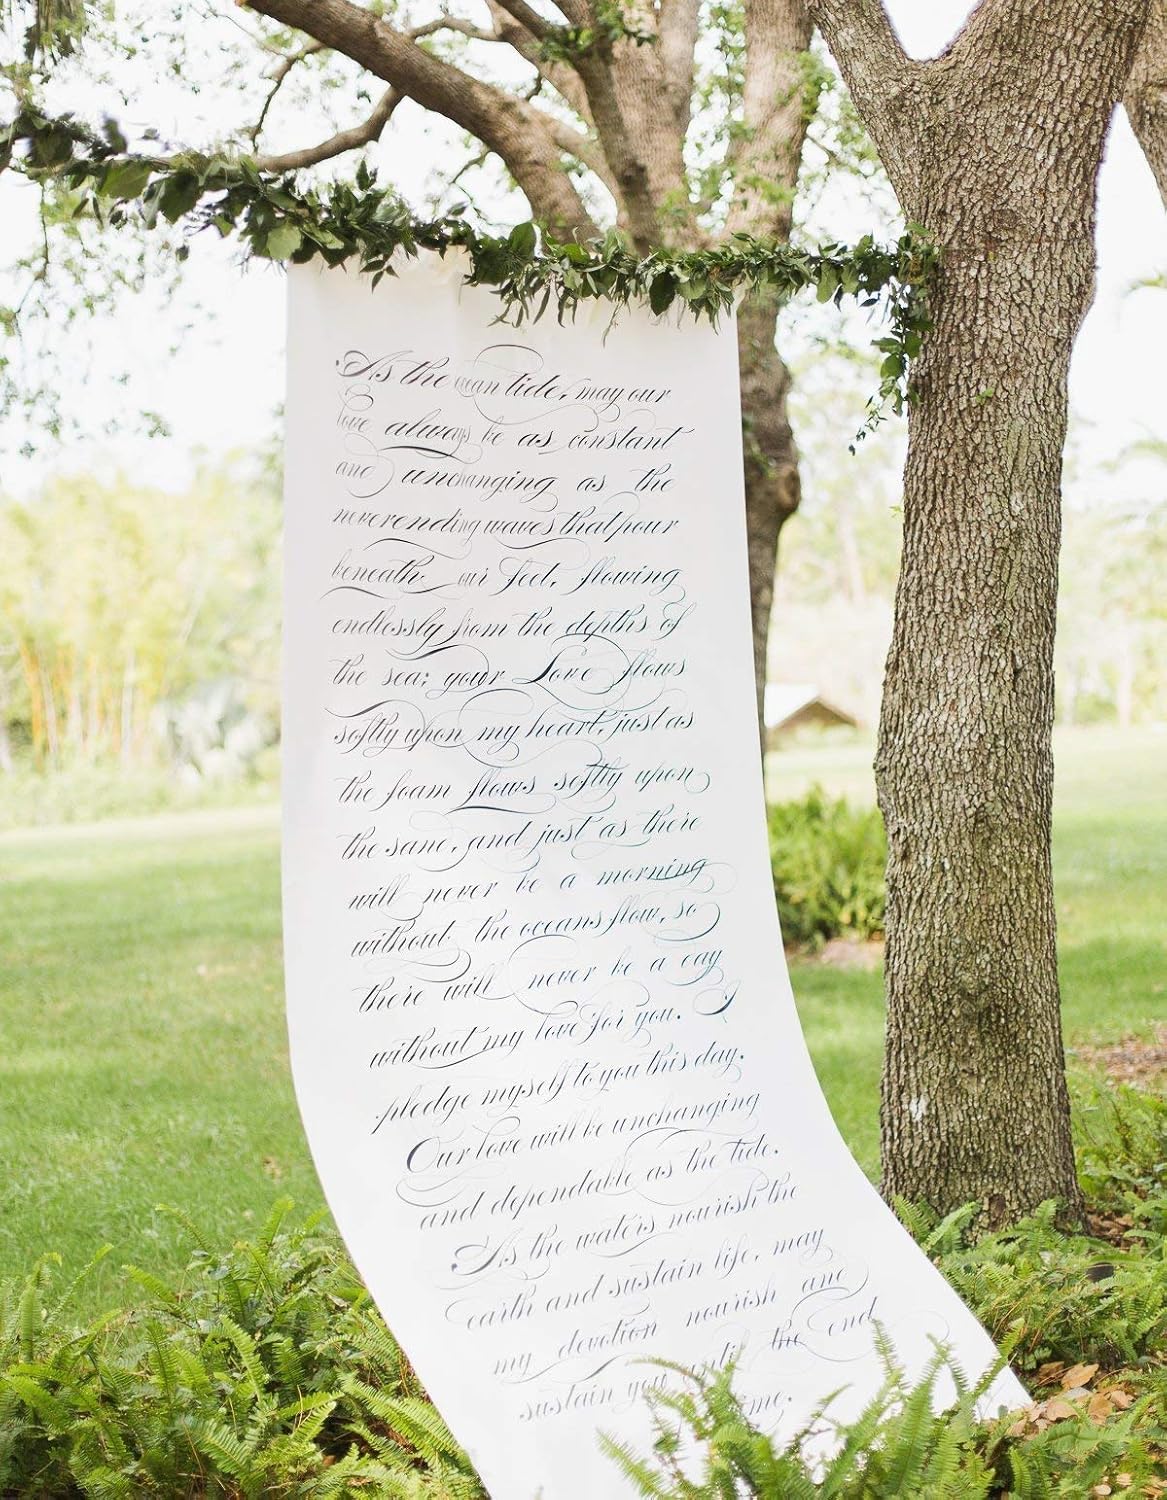 As the ocean tide, may our
love always be as constant
and unchanging as the
neverending waves that pour
beneath our feet, flowing
endlessly from the depths of
the sea; your Love flows
softly upon my heart, just as
the foam flows softly upon
the sand, and just as there
will never be a morning
without the oceans flow, so
there will never be a day
without my love for you. I
pledge myself to you this day.
Our love will be unchanging
and dependable as the tide.
As the waters nourish the
earth and sustain life, may
my devotion nourish and
sustain you until the end